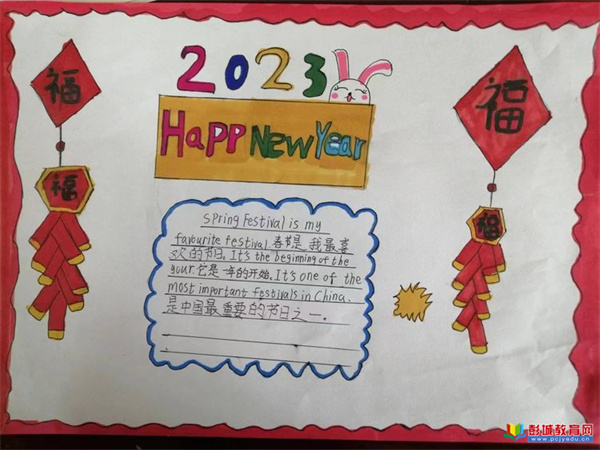 2023
HaPP NeW Year
福
福
福
福
Spring Festival is my
favourite festival.春节是我最喜
欢的节日.It's the beginning of the
your.它是一年的开始.It's one of the
most important festivals in China.
是中国最重要的节日之一.
彭城教育网
www.pcjyedu.cn